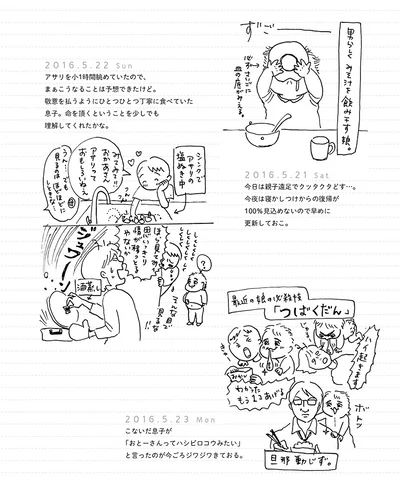 2016.5.22 Sun
アサリを小1時間眺めていたので、
まぁこうなることは予想できたけど。
敬意を払うようにひとつひとつ丁寧に食べていた
息子。命を頂くということを少しでも
理解してくれたかな。
シンクで
アサリの
塩ぬき中
みてみて!!
おかあさん
アサリって
おもしろいねえ
うん…でも
見るのはほどほどに
しときな…
酒蒸し
そんな目で
見るな!!
ずご
男らしく みそ汁を飲み干す娘。
必ずさいごに
皿の底がみえる。
2016.5.21 Sat
今日は親子遠足でクッタクタどす…。
今夜は寝かしつけからの復帰が
100%見込めないので早めに
更新しておこ。
最近の娘の必殺技
「つばくだん」
ハイ起きます
わかった
もう1コあげる
ボトッ
旦那動じず。
2016.5.23 Mon
こないだ息子が
「おとーさんってハシビロコウみたい」
と言ったのが今ごろジワジワきておる。